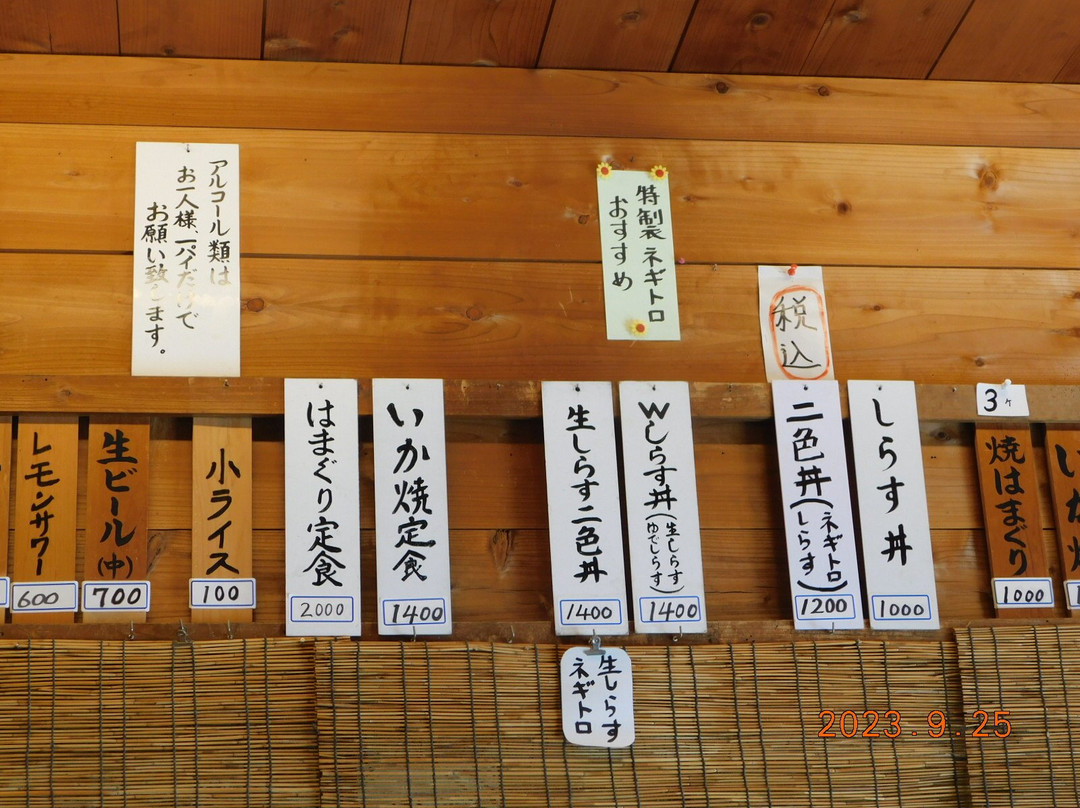 アルコール類は
お一人様、一パイだけで
お願い致します。
特製ネギトロ
おすすめ
税込
3ヶ
焼はまぐり
1000
しらす丼
1000
二色丼(ネギトロ
しらす)
1200
Wしらす丼(生しらす
ゆでしらす)
1400
生しらす二色丼
1400
生しらす
ネギトロ
いか焼定食
1400
はまぐり定食
2000
小ライス
100
生ビール(中)
700
レモンサワー
600
2023.9.25